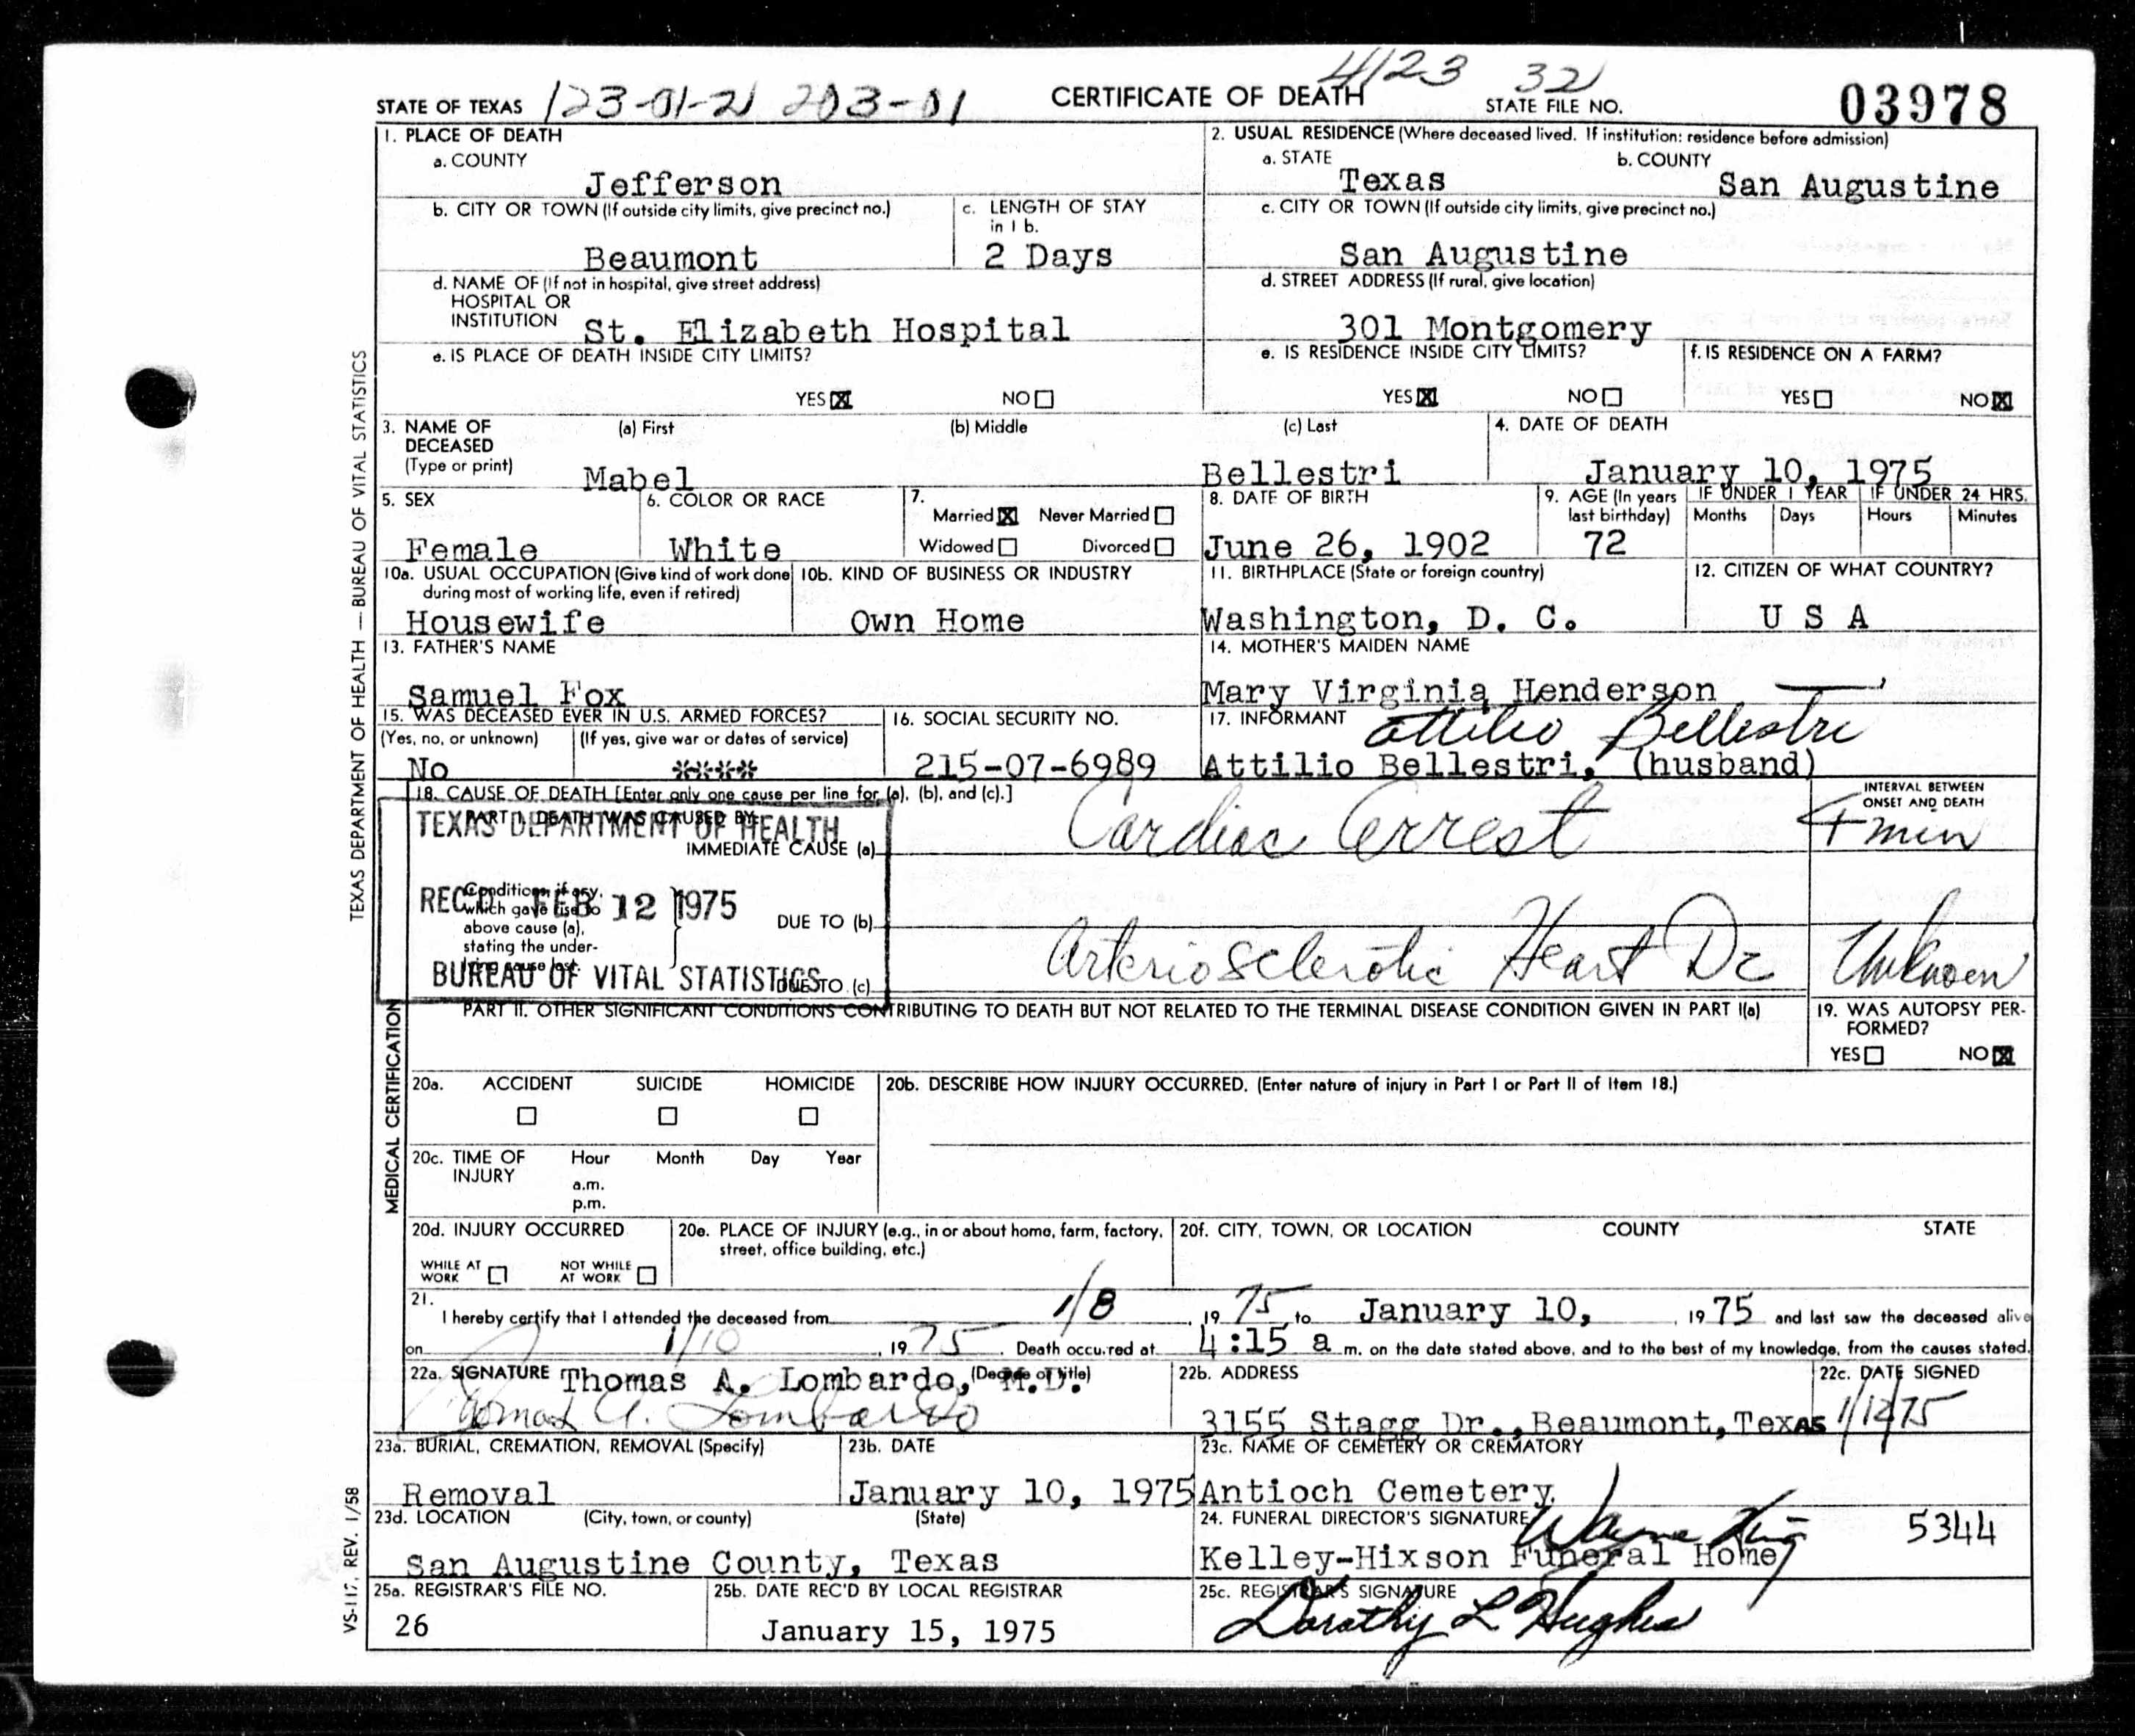 STATE OF TEXAS 123-01-21 203-01 CERTIFICATE OF DEATH 4123 32 STATE FILE NO. 03978
1. PLACE OF DEATH
a. COUNTY
Jefferson
2. USUAL RESIDENCE (Where deceased lived. If institution: residence before admission)
a. STATE b. COUNTY
Texas San Augustine
b. CITY OR TOWN (If outside city limits, give precinct no.)
Beaumont
c. LENGTH OF STAY
in 1 b.
2 Days
c. CITY OR TOWN (If outside city limits, give precinct no.)
San Augustine
d. NAME OF (If not in hospital, give street address)
HOSPITAL OR
INSTITUTION St. Elizabeth Hospital
d. STREET ADDRESS (If rural, give location)
301 Montgomery
e. IS PLACE OF DEATH INSIDE CITY LIMITS?
YES NO
e. IS RESIDENCE INSIDE CITY LIMITS?
YES NO
f. IS RESIDENCE ON A FARM?
YES NO
3. NAME OF
DECEASED
(Type or print)
(a) First (b) Middle (c) Last
Mabel Bellestri
4. DATE OF DEATH
January 10, 1975
5. SEX
Female
6. COLOR OR RACE
White
7.
Married Never Married
Widowed Divorced
8. DATE OF BIRTH
June 26, 1902
9. AGE (In years
last birthday)
72
IF UNDER 1 YEAR IF UNDER 24 HRS.
Months Days Hours Minutes
10a. USUAL OCCUPATION (Give kind of work done
during most of working life, even if retired)
Housewife
10b. KIND OF BUSINESS OR INDUSTRY
Own Home
11. BIRTHPLACE (State or foreign country)
Washington, D. C.
12. CITIZEN OF WHAT COUNTRY?
U S A
13. FATHER'S NAME
Samuel Fox
14. MOTHER'S MAIDEN NAME
Mary Virginia Henderson
15. WAS DECEASED EVER IN U.S. ARMED FORCES?
(Yes, no, or unknown) (If yes, give war or dates of service)
No ****
16. SOCIAL SECURITY NO.
215-07-6989
17. INFORMANT Attilio Bellestri
Attilio Bellestri, (husband)
18. CAUSE OF DEATH [Enter only one cause per line for (a), (b), and (c).]
PART I. DEATH WAS CAUSED BY:
IMMEDIATE CAUSE (a) Cardiac Arrest
INTERVAL BETWEEN
ONSET AND DEATH
4 min
TEXAS DEPARTMENT OF HEALTH
REC'D FEB 12 1975
BUREAU OF VITAL STATISTICS
Conditions, if any,
which gave rise to
above cause (a),
stating the under-
lying cause last.
DUE TO (b)
DUE TO (c)
Arteriosclerotic Heart Dz Unknown
PART II. OTHER SIGNIFICANT CONDITIONS CONTRIBUTING TO DEATH BUT NOT RELATED TO THE TERMINAL DISEASE CONDITION GIVEN IN PART I(a)
19. WAS AUTOPSY PER-
FORMED?
YES NO
20a. ACCIDENT SUICIDE HOMICIDE
20b. DESCRIBE HOW INJURY OCCURRED. (Enter nature of injury in Part I or Part II of Item 18.)
20c. TIME OF
INJURY
Hour Month Day Year
a.m.
p.m.
20d. INJURY OCCURRED
WHILE AT
WORK
NOT WHILE
AT WORK
20e. PLACE OF INJURY (e.g., in or about home, farm, factory,
street, office building, etc.)
20f. CITY, TOWN, OR LOCATION COUNTY STATE
21.
I hereby certify that I attended the deceased from 1/8, 1975 to January 10, 1975 and last saw the deceased alive
on 1/10, 1975. Death occured at 4:15 a m. on the date stated above, and to the best of my knowledge, from the causes stated.
22a. SIGNATURE Thomas A. Lombardo, M.D. (Degree or title)
Thomas A. Lombardo
22b. ADDRESS
3155 Stagg Dr., Beaumont, Texas
22c. DATE SIGNED
23a. BURIAL, CREMATION, REMOVAL (Specify)
Removal
23b. DATE
January 10, 1975
23c. NAME OF CEMETERY OR CREMATORY
Antioch Cemetery
23d. LOCATION (City, town, or county) (State)
San Augustine County, Texas
24. FUNERAL DIRECTOR'S SIGNATURE Wayne King 5344
Kelley-Hixson Funeral Home
25a. REGISTRAR'S FILE NO.
26
25b. DATE REC'D BY LOCAL REGISTRAR
January 15, 1975
25c. REGISTRAR'S SIGNATURE
Dorothy L Hughes
TEXAS DEPARTMENT OF HEALTH — BUREAU OF VITAL STATISTICS
MEDICAL CERTIFICATION
VS-117, REV. 1/58